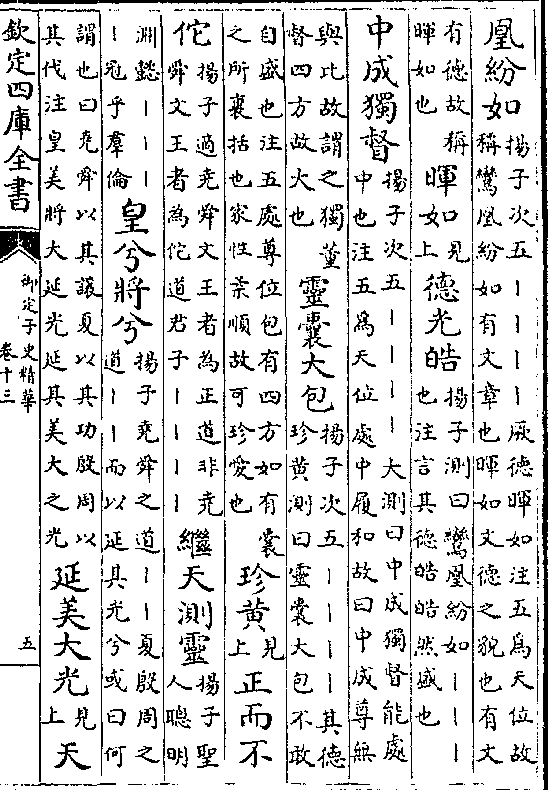 凰紛如揚子次五丨丨丨丨厥德暉如注五爲天位故
稱鸞凰紛如有文章也暉如文德之貌也有文
有德故稱
暉如也
暉如見
上德光皓揚子測曰鸞凰紛如丨丨丨
也注言其德皓皓然盛也
中成獨督揚子次五丨丨丨丨大測曰中成獨督能處
中也注五爲天位處中履和故曰中成尊無
與比故謂之獨董
督四方故大也
靈囊大包揚子次五丨丨丨丨其德
珍黄測曰靈囊大包不敢
自盛也注五處尊位包有四方如有囊
之所裹括也家性柔順故可珍愛也
珍黄見
上正而不
佗揚子適堯舜文王者為正道非堯
舜文王者為佗道君子丨丨丨丨
繼天測靈揚子聖
人聰明
淵懿丨丨丨丨
丨冠乎羣倫
皇兮將兮揚子堯舜之道丨丨丨夏殷周之
道丨丨而以延其光兮或曰何
謂也曰堯舜以其讓夏以其功殷周以
其代注皇美將大延光延其美大之光
延美大光見
上天
欽定四庫全書
御定子史精華
卷十三
五